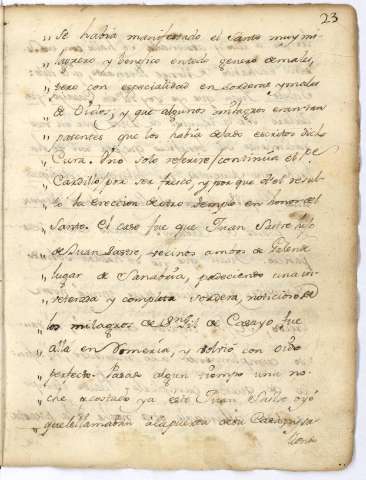 23
„ Se habia manifestado el Santo muy mi-
„ lagrero y benefico en todo genero de males,
„ pero con especialidad en sorderas, y males
„ de Oidos, y que algunos milagros eran tan
„ patentes que los habia dejado escritos dicho
„ Cura. Uno solo referire (continúa el Pe
„ Cardillo) por ser fresco, y por que de el resul-
„ to la ereccion de otro templo en honor del
„ Santo. El caso fue que Juan Sastre hijo
„ de Juan Sastre, vecinos ambos de
„ lugar de Sanabria, padeciendo una in-
„ veterada y completa sordera, noticioso de
„ los milagros de Sn Gil de Casayo, fue
„ allá en Romeria, y volvió con oido
„ perfecto. Pasado algun tiempo una no-
„ che acostado ya este Juan Sastre oyó
„ que llamaban a la puerta de su Casa, y sa